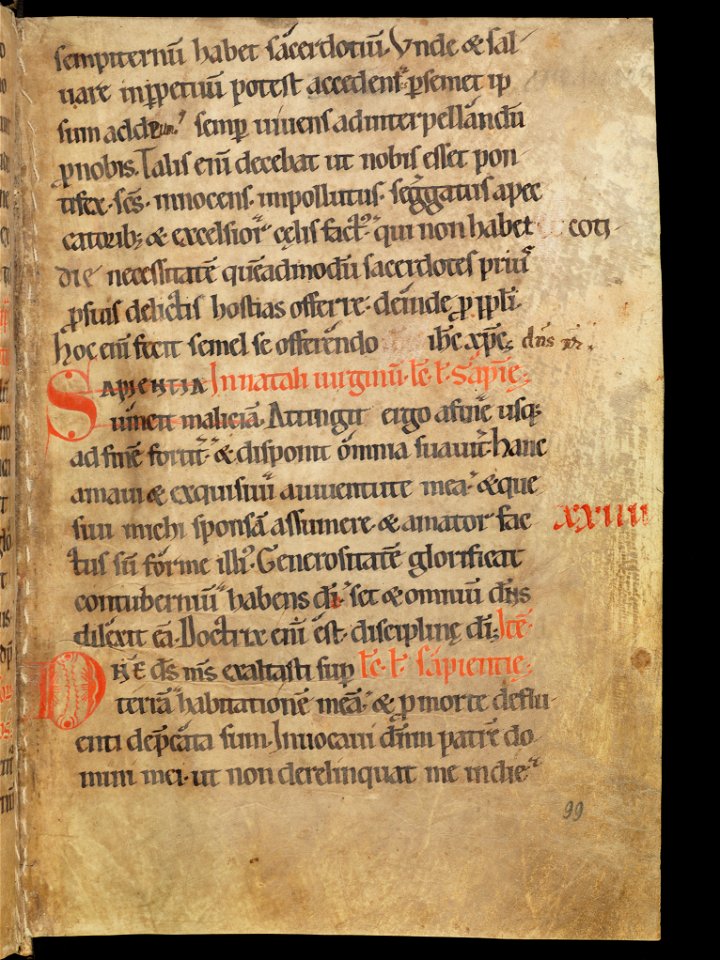 sempiternũ habet sacerdotiũ. Vnde & sal-
uare inꝑpetuũ potest accedens ꝑsemet ip
sum semꝑ uiuens adinterpellandũ
ꝓnobis. Talis eni̅ decebat ut nobis esset pon-
tifex. sc̅s. innocens. inpollutus. seg̅gatus apec
catorib; & excelsior cęlis fact᷒. qui non habet coti-
die necessitatẽ quẽadmodũ sacerdotes priu᷒
ꝓsuis delictis hostias offerre. deinde ꝓ ppl̅i.
hoc eni̅ fecit semel se offerendo ih̅c xp̅c; dn̅s nr̅.
SAPIENTIA In natali uirginũ. lc̅. l. sapi̅e;
uincit maliciã. Attingit ergo afine usq;
ad finẽ fortit̾ & disponit omnia suauit̾. hanc
amaui & exquisiui auiuentute mea. & que
siui michi sponsã assumere. & amator fac
tus sũ forme illi᷒. Generositatẽ glorificat
contuberniũ habens di̅. set & omniũ dn̅s
dilexit eã. Doctrix eni̅ est disciplinę di̅; Ite̅
XXIIII
DNE ds̅ ms̅ exaltasti suꝑ lc̅. l. sapientię;
terrã habitationẽ meã. & ꝓ morte deflu-
enti dep̅cata sum. Inuocaui dn̅m patrẽ do
mini mei. ut non derelinquat me indie
99